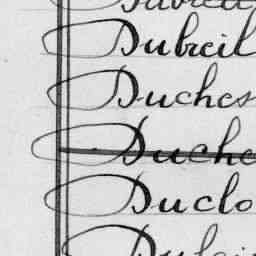 Dubreil
Duches
Duche
Duclo